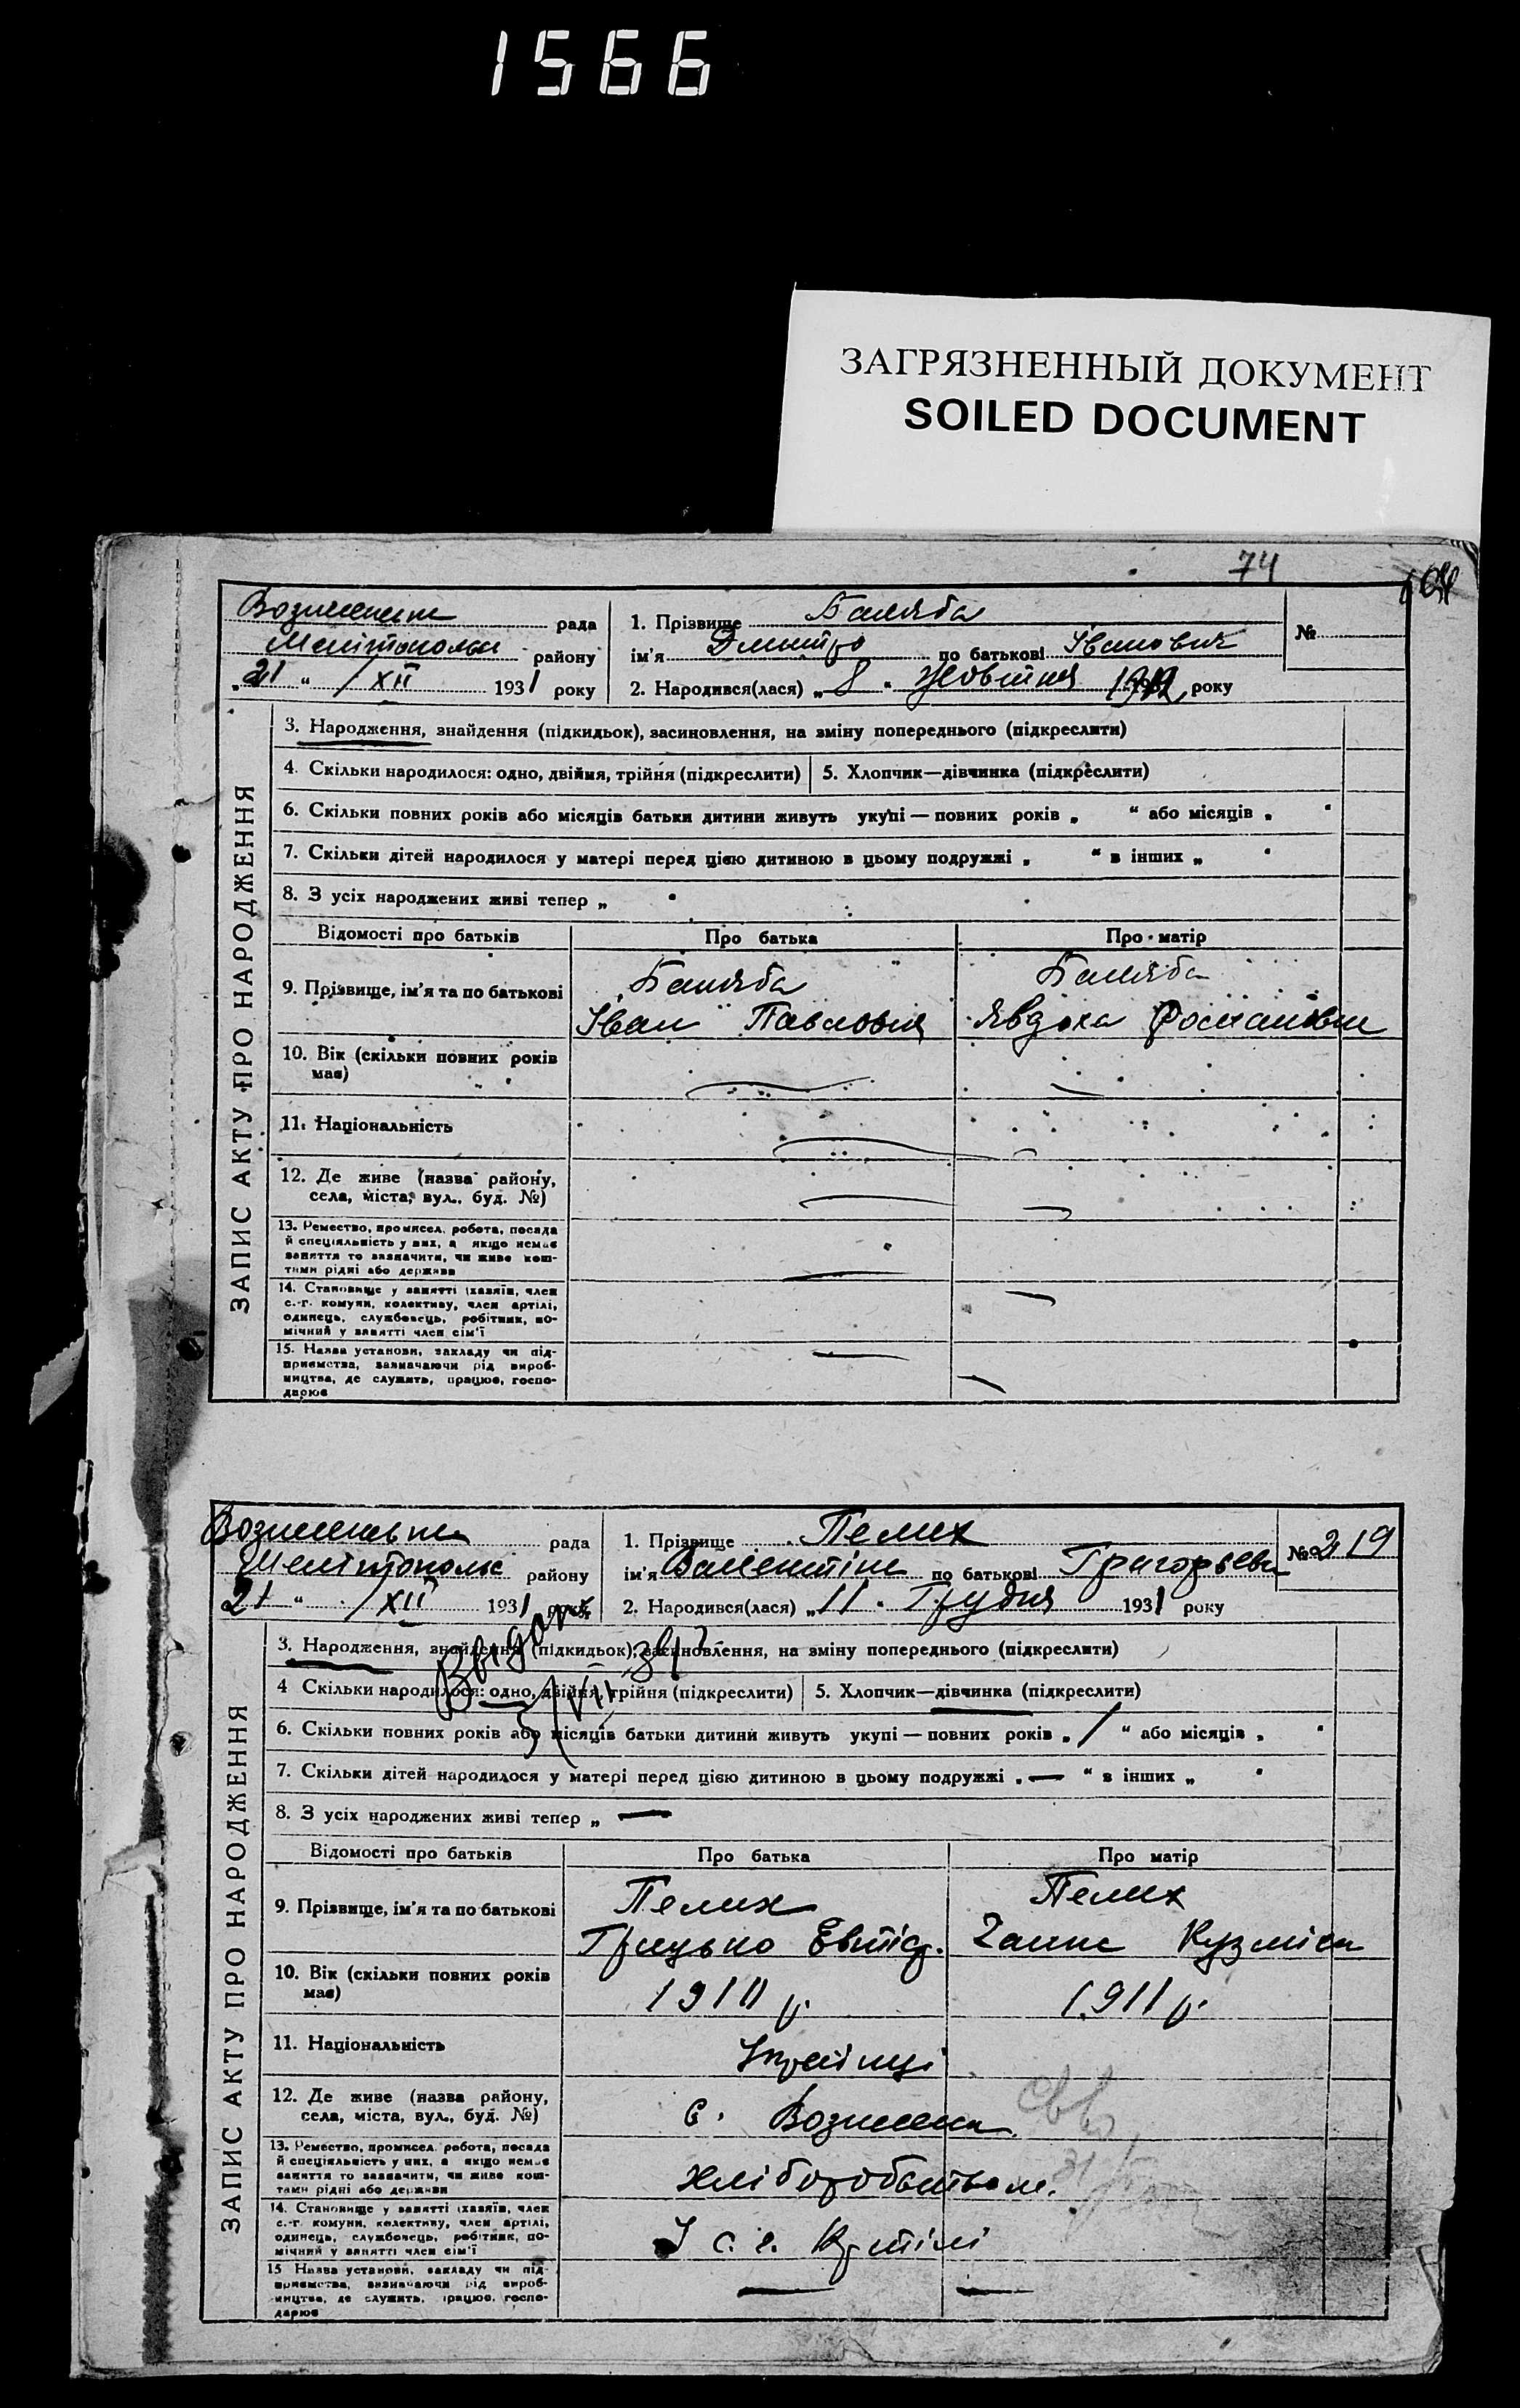 1566
ЗАГРЯЗНЕННЫЙ ДОКУМЕНТ
SOILED DOCUMENT
74
рада
Мелітопольс району
„21 “ /XII 1931 року
1. Прізвище Баляба
ім'я Дмитро по батькові Іванович
2. Народився(лася) „8 “ Жовтня року
№
ЗАПИС АКТУ ПРО НАРОДЖЕННЯ
3. Народження, знайдення (підкидьок), засиновлення, на зміну попереднього (підкреслити)
4. Скільки народилося: одно, двійня, трійня (підкреслити) 5. Хлопчик—дівчинка (підкреслити)
6. Скільки повних років або місяців батьки дитини живуть укупі — повних років „ “ або місяців „ “
7. Скільки дітей народилося у матері перед цією дитиною в цьому подружжі „ “ в інших „ “
8. З усіх народжених живі тепер „ “
Відомості про батьків Про батька Про матір
9. Прізвище, ім'я та по батькові
Баляба
Іван Павлович
Баляба
Явдоха
10. Вік (скільки повних років
має)
11. Національність
12. Де живе (назва району,
села, міста, вул., буд. №)
13. Ремество, промисел, робота, посада
й спеціяльність у них, а якщо немає
заняття то зазначити, чи живе кош-
тами рідні або держави
14. Становище у занятті (хазяїн, член
с.-г. комуни, колективу, член артілі,
одинець, службовець, робітник, по-
мічний у занятті член сім'ї
15. Назва установи, закладу чи під-
приємства, зазначаючи рід вироб-
ництва, де служить, працює, госпо-
дарює
рада
Мелітопольс району
21 “ /XII 1931 року
1. Прізвище Пелих
ім'я Валентіна по батькові Григорьевн
2. Народився(лася) „11 “ Грудня 1931 року
№ 219
ЗАПИС АКТУ ПРО НАРОДЖЕННЯ
3. Народження, знайдення (підкидьок), засиновлення, на зміну попереднього (підкреслити)
4 Скільки народилося: одно, двійня, трійня (підкреслити) 5. Хлопчик—дівчинка (підкреслити)
6. Скільки повних років або місяців батьки дитини живуть укупі — повних років „ 1 “ або місяців „ “
7. Скільки дітей народилося у матері перед цією дитиною в цьому подружжі „ — “ в інших „ “
8. З усіх народжених живі тепер „ —
Відомості про батьків Про батька Про матір
9. Прізвище, ім'я та по батькові
Пелих
Грицько Евтіф.
Пелих
Кузміна
10. Вік (скільки повних років
має)
1911 р.
11. Національність
Українці
12. Де живе (назва району,
села, міста, вул., буд. №)
с. Вознесенка
13. Ремество, промисел, робота, посада
й спеціяльність у них, а якщо немає
заняття то зазначити, чи живе кош-
тами рідні або держави
хліборобством.
14. Становище у занятті (хазяїн, член
с.-г. комуни, колективу, член артілі,
одинець, службовець, робітник, по-
мічний у занятті член сім'ї
У с. г. Артілі
15 Назва установи, закладу чи під-
приємства, зазначаючи рід вироб-
ництва, де служить, працює, госпо-
дарює